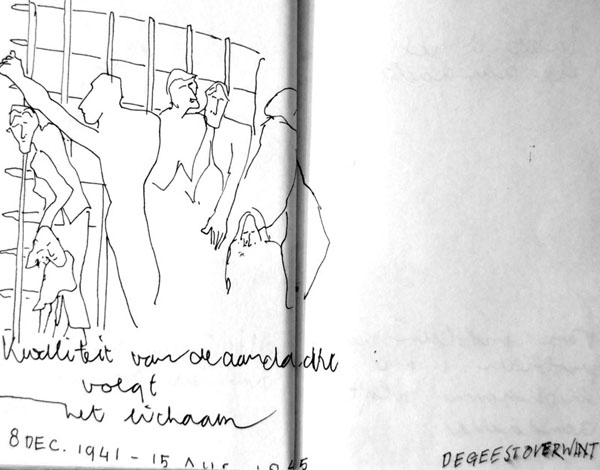 Kwaliteit van de aandacht
volgt
het lichaam
8 DEC. 1941 - 15 AUG. 1945
DE GEEST OVERWINT